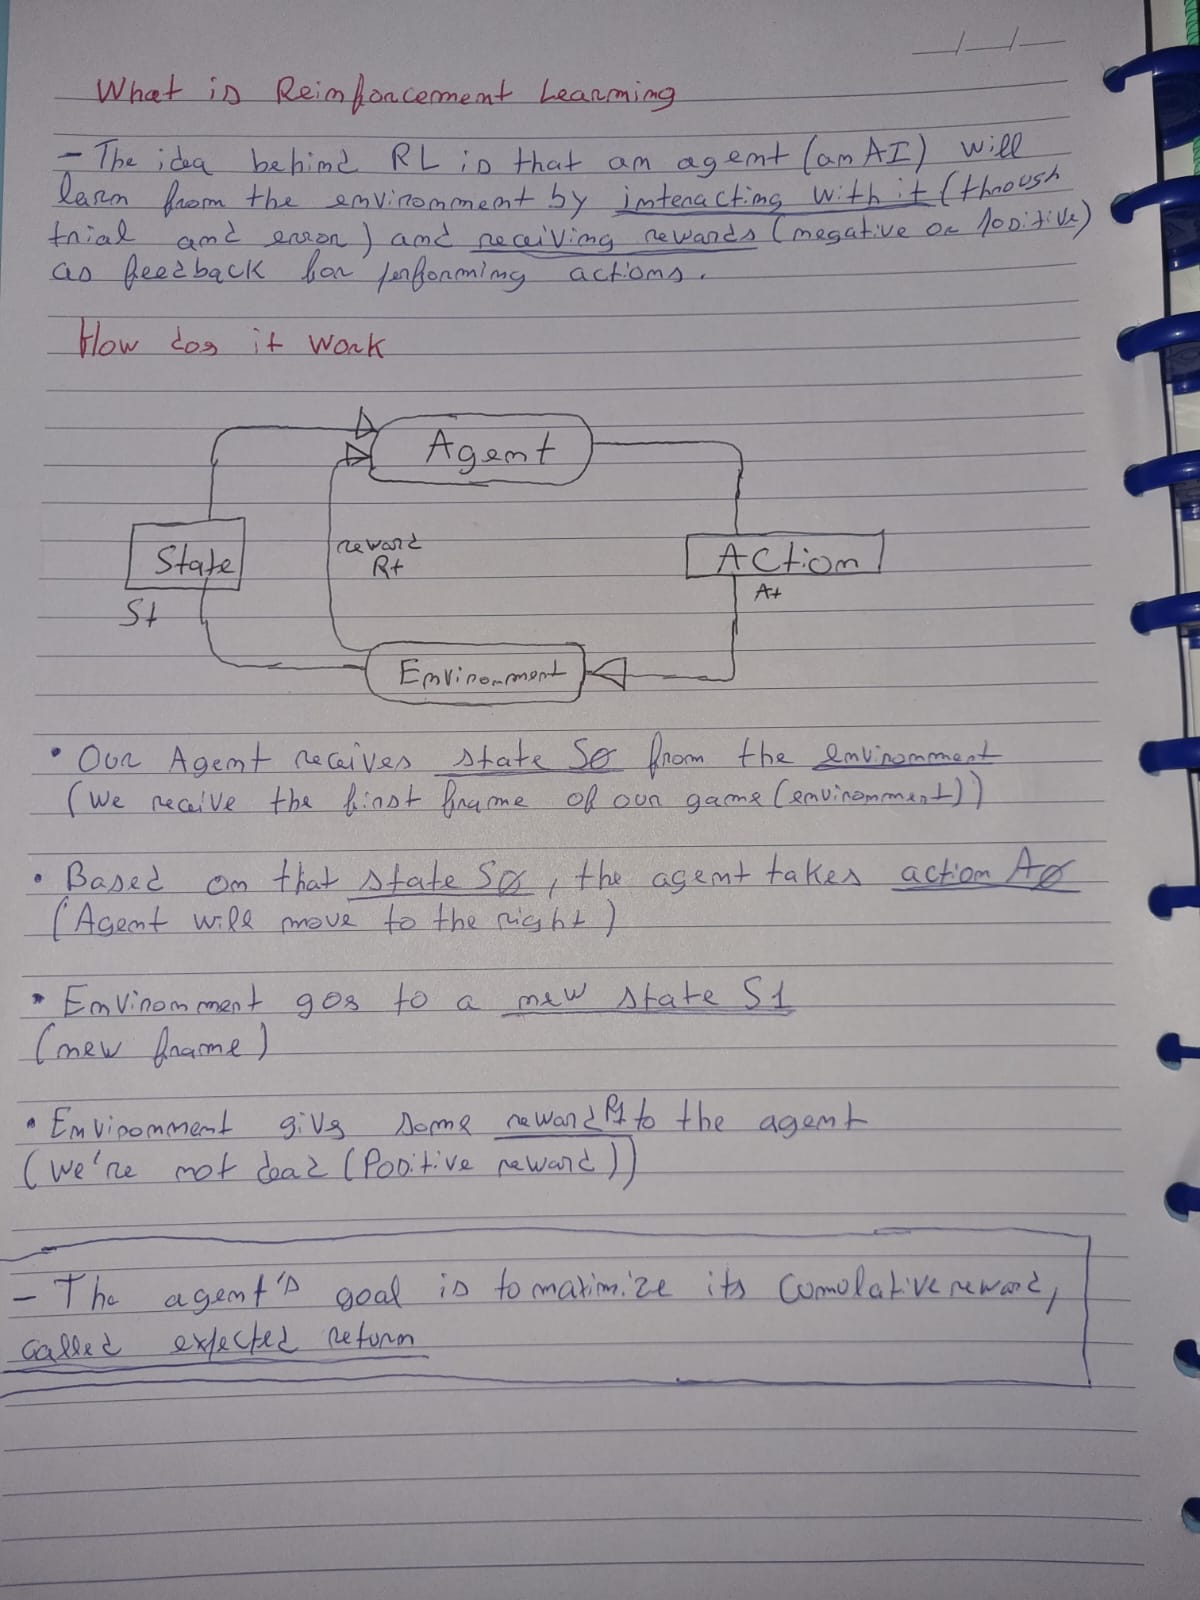 What is Reinforcement Learning
- The idea behind RL is that an agent (an AI) will
larn from the environment by interacting with it (through
trial and error) and receiving rewards (negative or positive)
as feedback for performing actions.
How dos it work
Agent
State
St
reward
Rt
Action
At
Environment
• Our Agent receives state S0 from the environment
(we receive the first frame of our game (environment))
• Based on that state S0, the agent takes action A0
(Agent will move to the right)
• Environment gos to a new state S1
(new frame)
• Environment givs some reward R1 to the agent
(we're not dead (Positive reward))
- The agent's goal is to maximize its cumolative reward,
called expected return